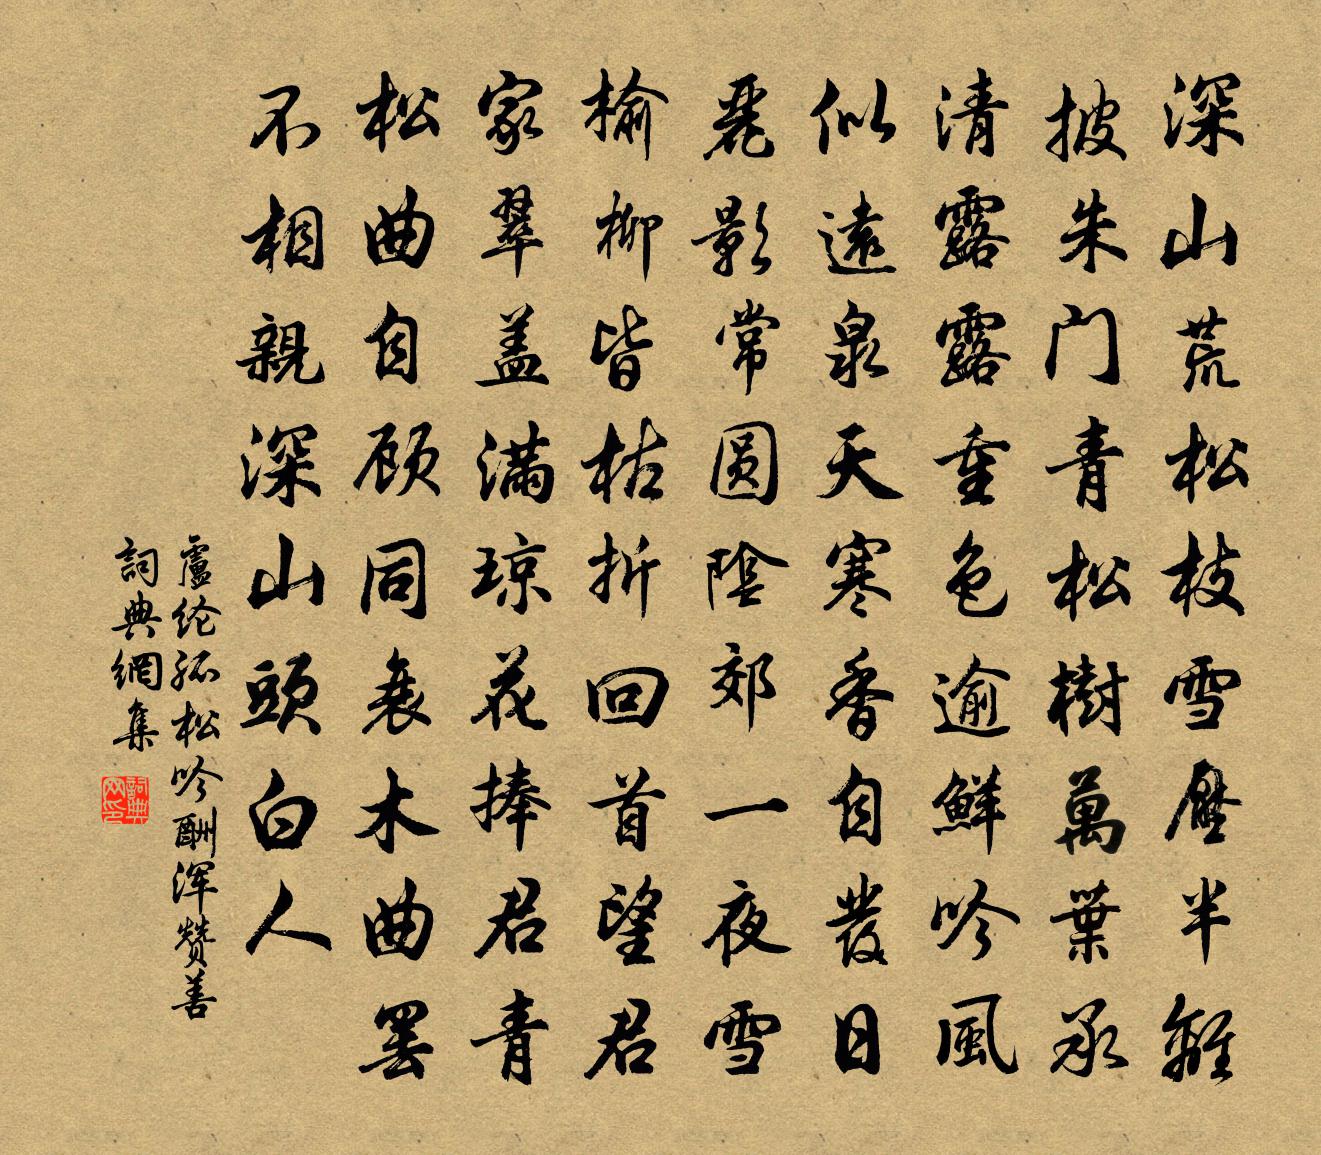 深山荒松枝雪壓半離
披朱门青松樹萬葉承
清露露重色逾鮮吟風
似遠泉天寒香自發日
麗影常圆陰郊一夜雪
榆柳皆枯折回首望君
家翠盖满琼花捧君青
松曲自顾同衰木曲罢
不相親深山頭白人
盧纶孤松吟酬浑赞善
詞典網集
詞典网印